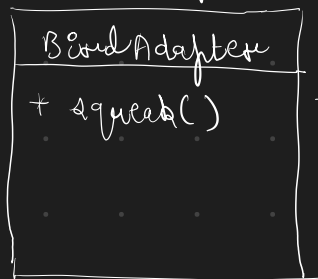 BirdAdapter
+ squeak()